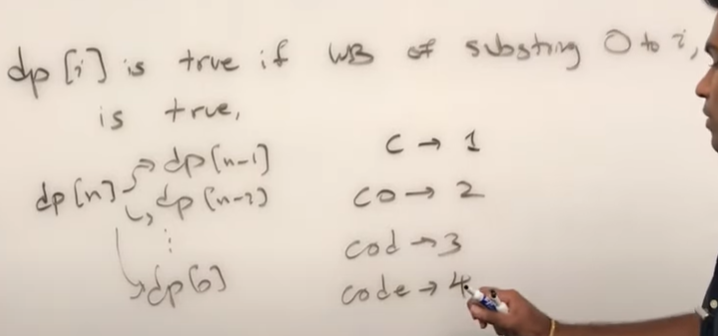 dp[i] is true if WB of substring 0 to i,
is true,
dp[n] → dp[n-1]
↳ dp[n-2)
⋮
↘ dp[0]
c → 1
co → 2
cod → 3
code → 4